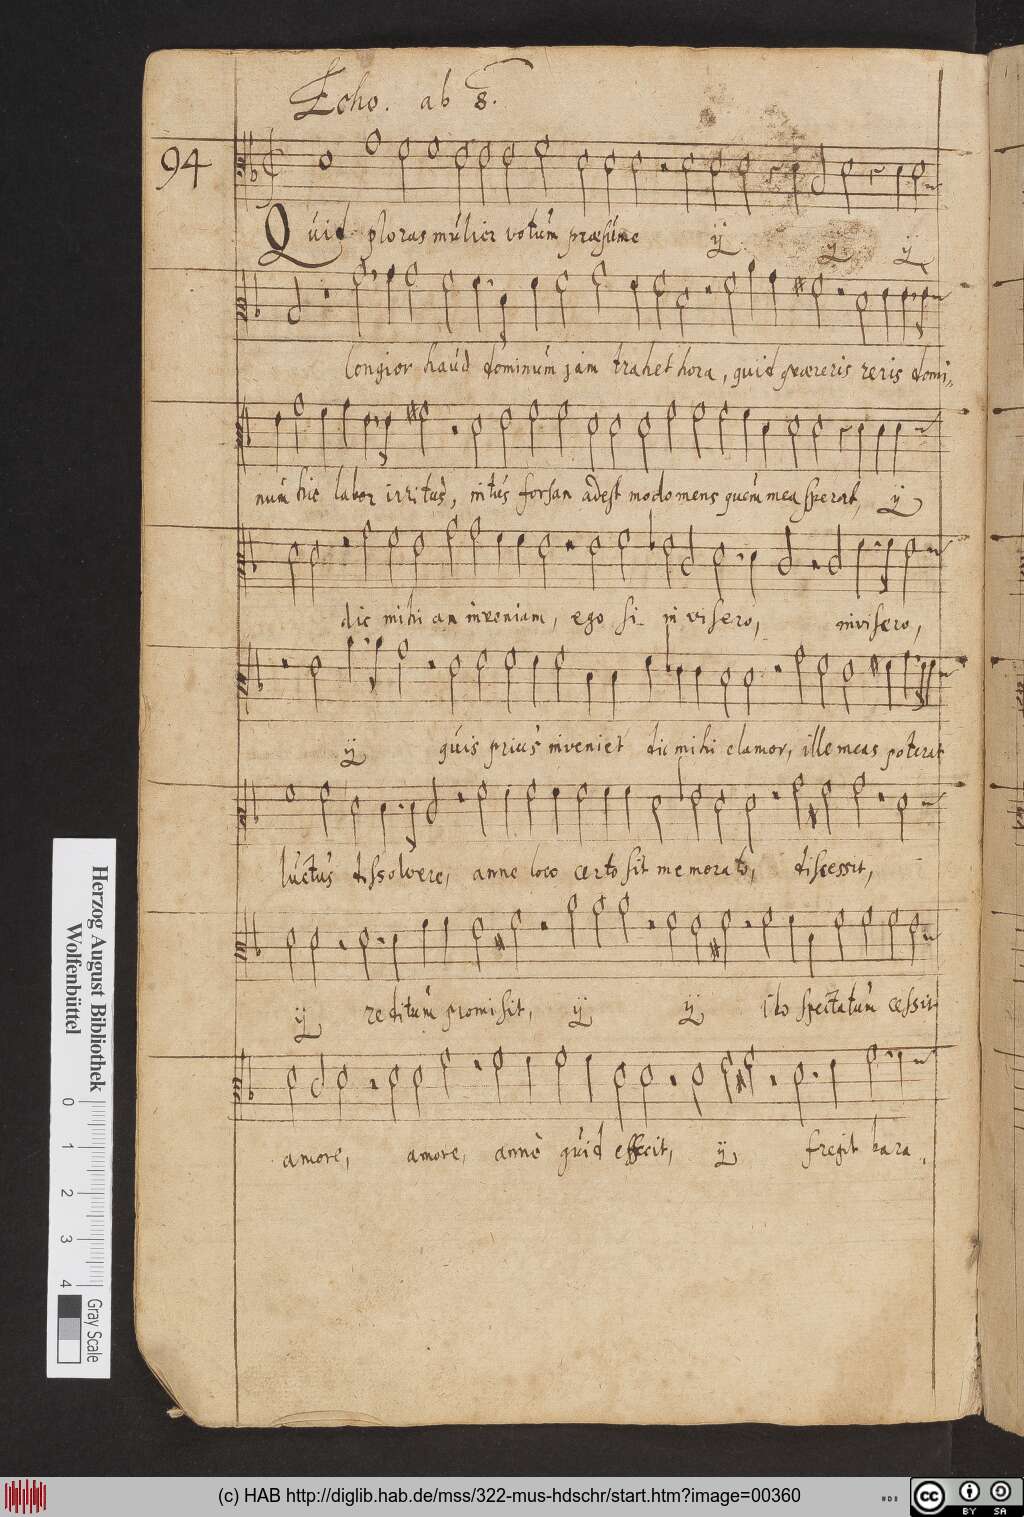 Echo. ab 8.
94
Quid ploras mulier votum præsume ij ij ij
longior haud dominum jam trahet hora, quid quæreris reris domi=
num hic labor irritus, intus forsan adest modo mens quem mea sperat, ij
dic mihi an inveniam, ego si invisero, invisero,
ij quis prius inveniet dic mihi clamor, ille meas poterit
luctus dissolvere, anne loco certo sit memorato, discessit,
ij reditum promisit, ij ij ibo spectatum cessit
amore, amore, anne quid effecit, ij fregit hara,
Herzog August Bibliothek
Wolfenbüttel
0 1 2 3 4 Gray Scale
(c) HAB http://diglib.hab.de/mss/322-mus-hdschr/start.htm?image=00360
cc BY SA